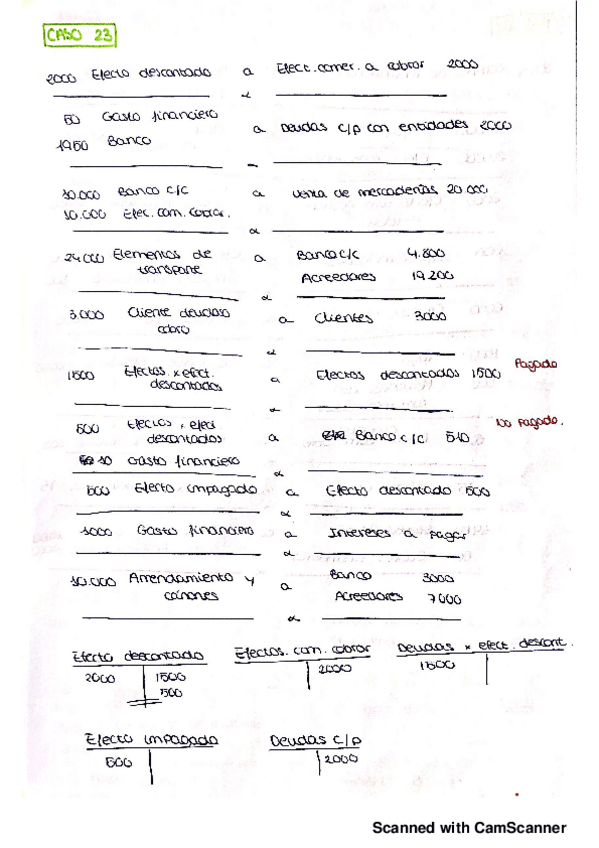 CASO 23
2000 Efecto descontado a Efect.comer. a cobrar 2000
50 Gasto financiero
1950 Banco a Deudas c/p con entidades 2000
10.000 Banco c/c a Venta de mercaderías 20.000
10.000 Efec. com. cobrar.
24.000 Elementos de a Banco c/c 4.800
transporte Acreedores 19.200
3.000 Cliente dudoso a Clientes 3000
cobro
1500 Efectos. x efect. a Efectos descontados 1500 Pagado
descontados
500 Efectos x efect a Banco c/c 510 no pagado.
descontados
10 Gasto financiero
500 Efecto impagado a Efecto descontado 500
1000 Gasto financiero a Intereses a pagar
10.000 Arrendamiento y a Banco 3000
cánones Acreedores 7000
Efecto descontado Efectos. com. cobrar Deudas x efect. descont.
2000 1500 2000 1500
500
Efecto impagado Deudas c/p
500 2000
Scanned with CamScanner